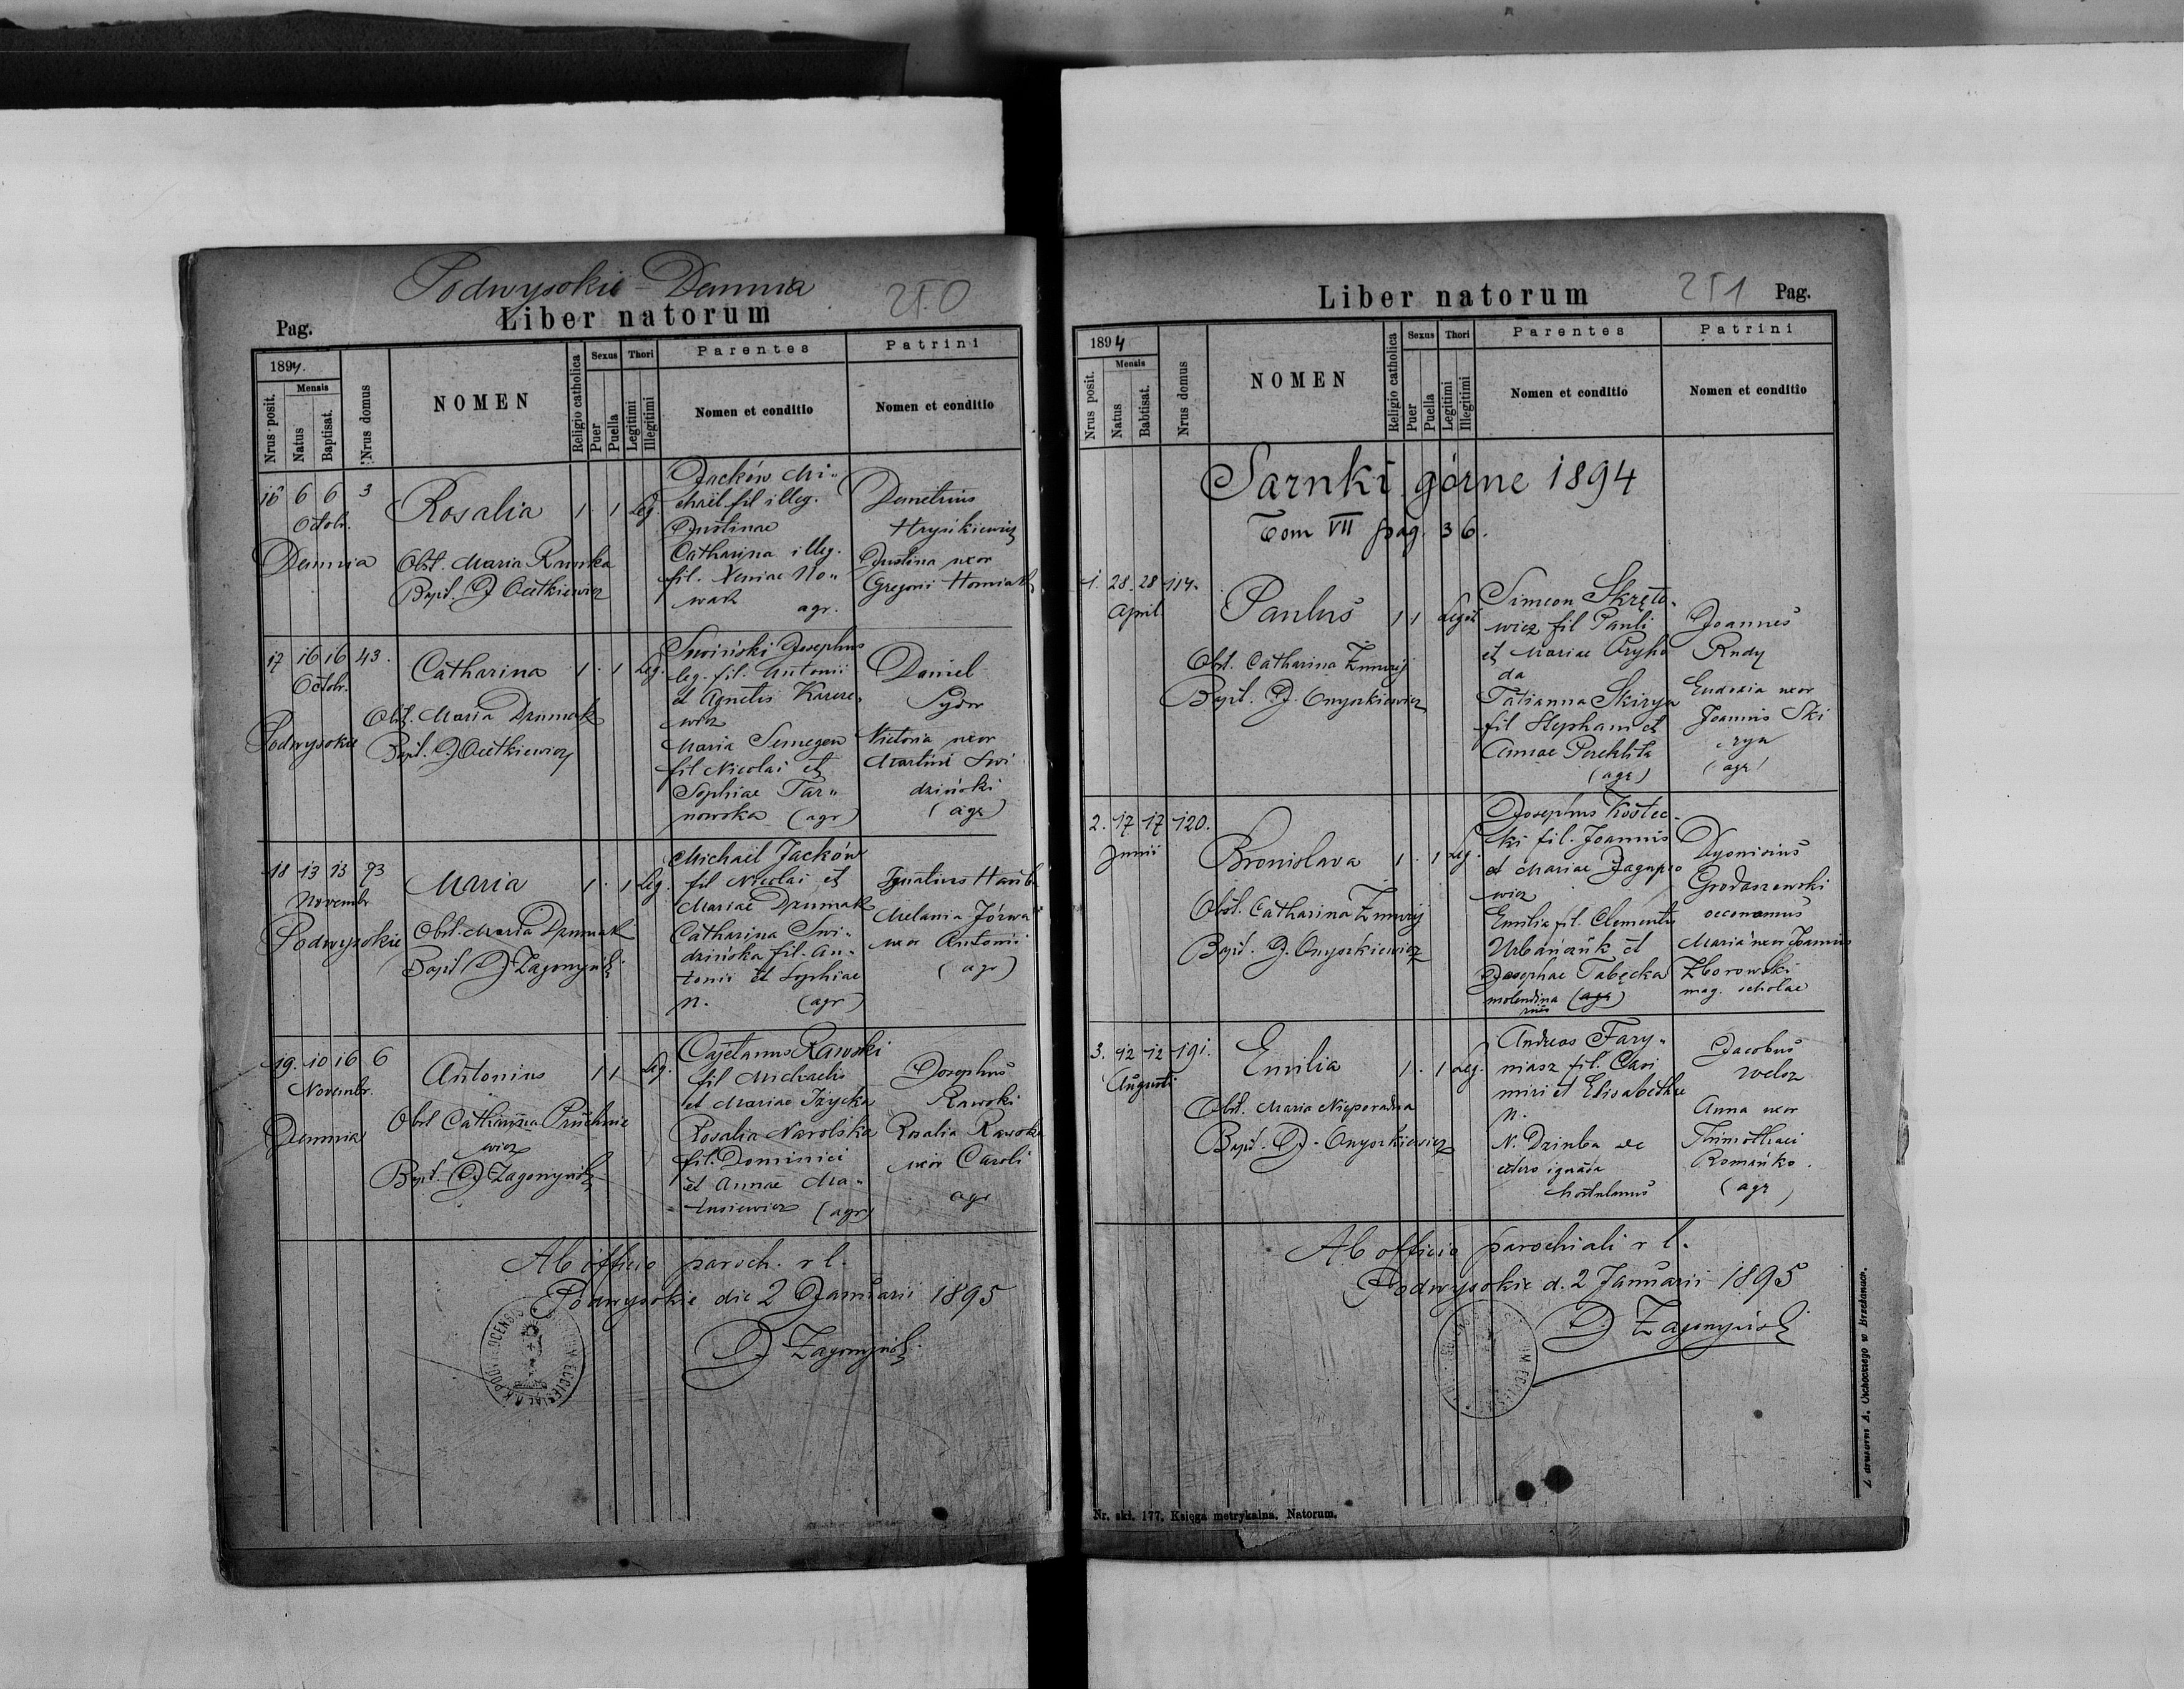 Podwysokie - Demnia
250
Pag.
Liber natorum
1894.
Nrus posit.
Mensis
Natus
Baptisat.
Nrus domus
NOMEN
Religio catholica
Sexus
Puer
Puella
Thori
Legitimi
Illegitimi
Parentes
Nomen et conditio
Patrini
Nomen et conditio
16 6 6 3
Octobr.
Demnia
Rosalia 1 . 1 Leg.
Obst. Maria
Bapt.
Jacków Mi„
chaël fil illeg.
Justinae
Catharina illeg.
fil. Xeniae No„
wak
agr.
Demetrius
Justina uxor
Gregorii
17 16 16 43.
Octobr.
Podwysokie
Catharina 1 . 1 Leg.
Obst. Maria Drumak
Bapt.
Josephus
leg. fil. Antonii
et Agnetis
wicz
Maria
fil Nicolai et
Sophiae Tar„
nowska (agr)
Daniel
Sydor
Victoria uxor
Martini Swi
dziński
(agr)
18 13 13 93
Novembr
Podwysokie
Maria 1 . 1 Leg.
Obst. Maria Drumak
Bapt
Michaël Jacków
fil Nicolai et
Mariae Drumak
Catharina Swi„
dzińska fil. An„
tonii et Sophiae
N. (agr)
Ignatius
Melania
uxor Antonii
(agr)
19. 10 16 6
Novembr.
Demnia
Antonius 1 1 Leg.
Obst Catharina
wicz
Bapt.
Cajetanus Rawski
fil Michaelis
et Mariae Iżycka
Rosalia Narolska
fil. Dominici
et Annae Ma„
tusiewicz (agr)
Josephus
Rawski
Rosalia Rawska
uxor Caroli
agr
Ab officio paroch. r l.
Podwysokie die 2 Januarii 1895
Liber natorum
251
Pag.
1894
Nrus posit.
Mensis
Natus
Babtisat.
Nrus domus
NOMEN
Religio catholica
Sexus
Puer
Puella
Thori
Legitimi
Illegitimi
Parentes
Nomen et conditio
Patrini
Nomen et conditio
Sarnki górne 1894
Tom VII pag. 36.
1. 28 28 114.
April
Paulus 1 1 Legit
Obst. Catharina Żmurij
Bapt. Onyszkiewicz
Simeon Skręto„
wicz fil Pauli
et Mariae Pryho
da
Tatianna Skirya
fil Stephani et
Annae
(agr)
Joannes
Rudy
Eudoxia uxor
Joannis Ski
rya
(agr)
2. 17 17 120.
Junii
Bronislava 1 . 1 Leg.
Obst. Catharina Żmurij
Bapt. Onyszkiewicz
Josephus Kostec„
ki fil. Joannis
et Mariae
wicz
Emilia fil. Clementis
Urbańczik et
Josephae Tabęcka
(agr)
Dyonisius
Grodaszewski
oeconomus
Maria uxor Joannis
Zborowski
mag. scholae
3. 12 12 191.
Augusti
Emilia 1 . 1 Leg.
Obst. Maria Nieporadna
Bapt. Onyszkiewicz
Andreas Fary„
niasz fil. Casi
miri et Elisabethae
N.
N. Dziuba de
cetero ignota
Jacobus
Welcz
Anna uxor
Thimothaei
Romańko.
(agr)
Ab officio parochiali r l.
Podwysokie d. 2 Januarii 1895
Nr. skł. 177. Księga metrykalna. Natorum.